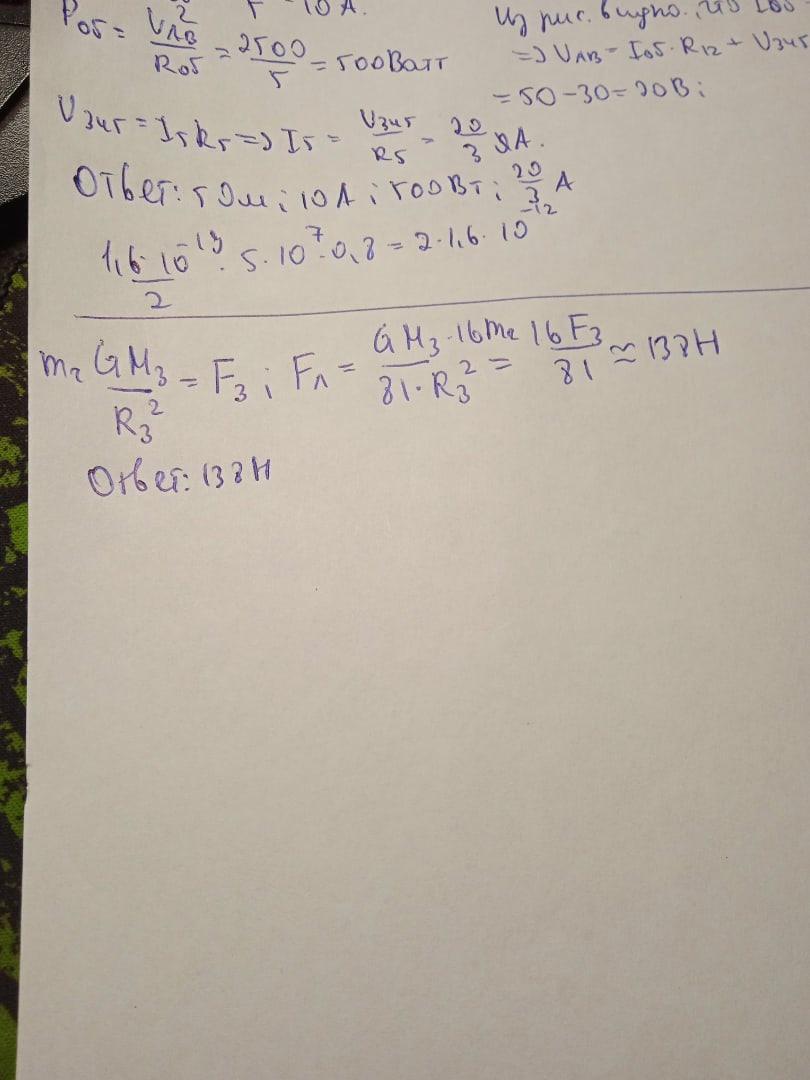 Pоб = Uав² / Rоб = 2500 / 5 = 500 Ватт
= 10 А.
Из рис. видно, что Iоб
=> UАВ - Iоб · R12 + U345
= 50 - 30 = 20 В;
U345 = I5R5 => I5 = U345 / R5 = 20 / 3 А.
Ответ: 5 Ом; 10 А; 500 Вт; 20/3 А
1,6 · 10⁻¹⁹ / 2 · 5 · 10⁷ · 0,8 = 2 · 1,6 · 10⁻¹²
m₂ GM₃ / R₃² = F₃; Fл = GM₃ · 16m₂ / 81 · R₃² = 16F₃ / 81 ≃ 138Н
Ответ: 138Н